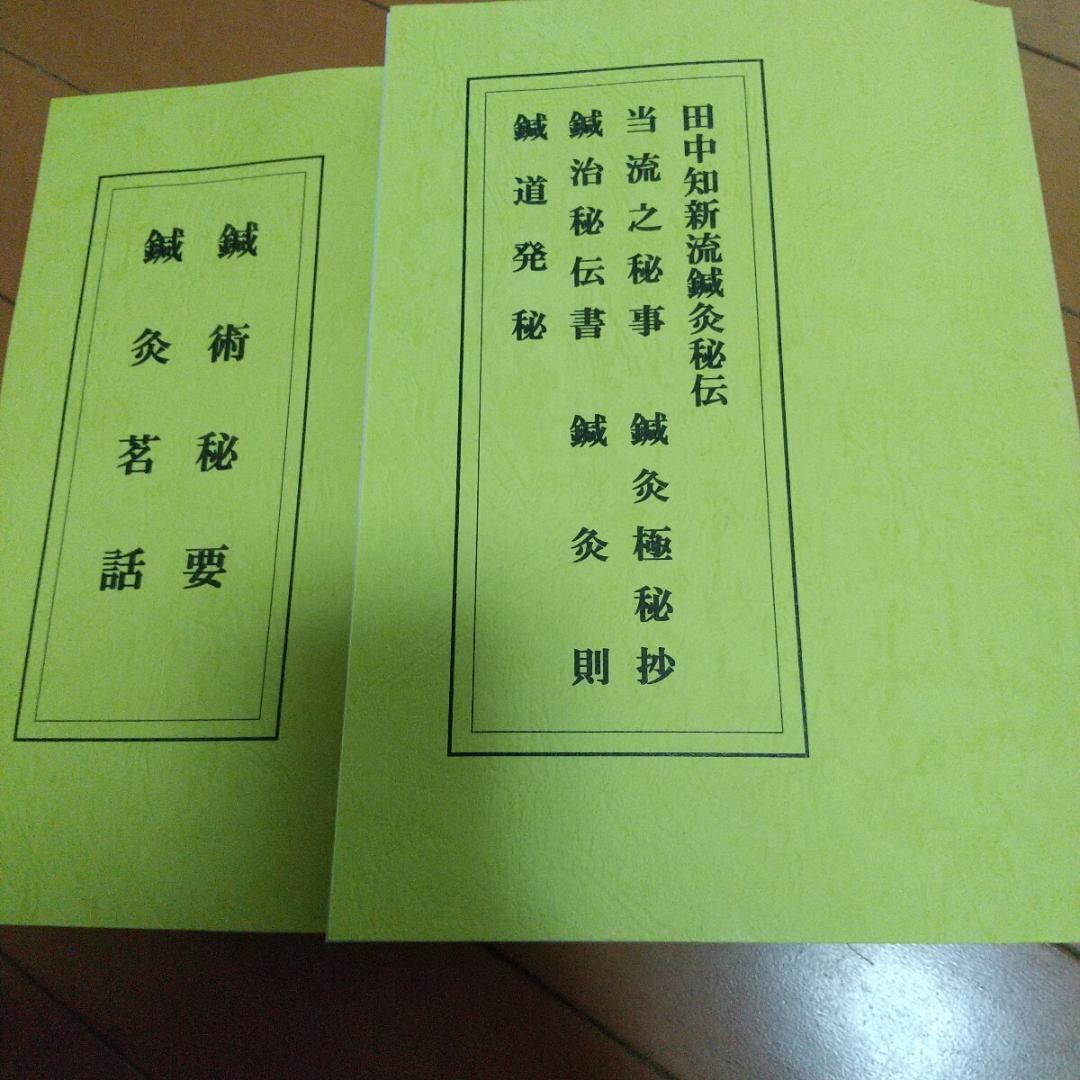 田中知新流鍼灸秘伝
当流之秘事 鍼灸極秘抄
鍼治秘伝書 鍼灸則
鍼道発秘
鍼術秘要
鍼灸茗話